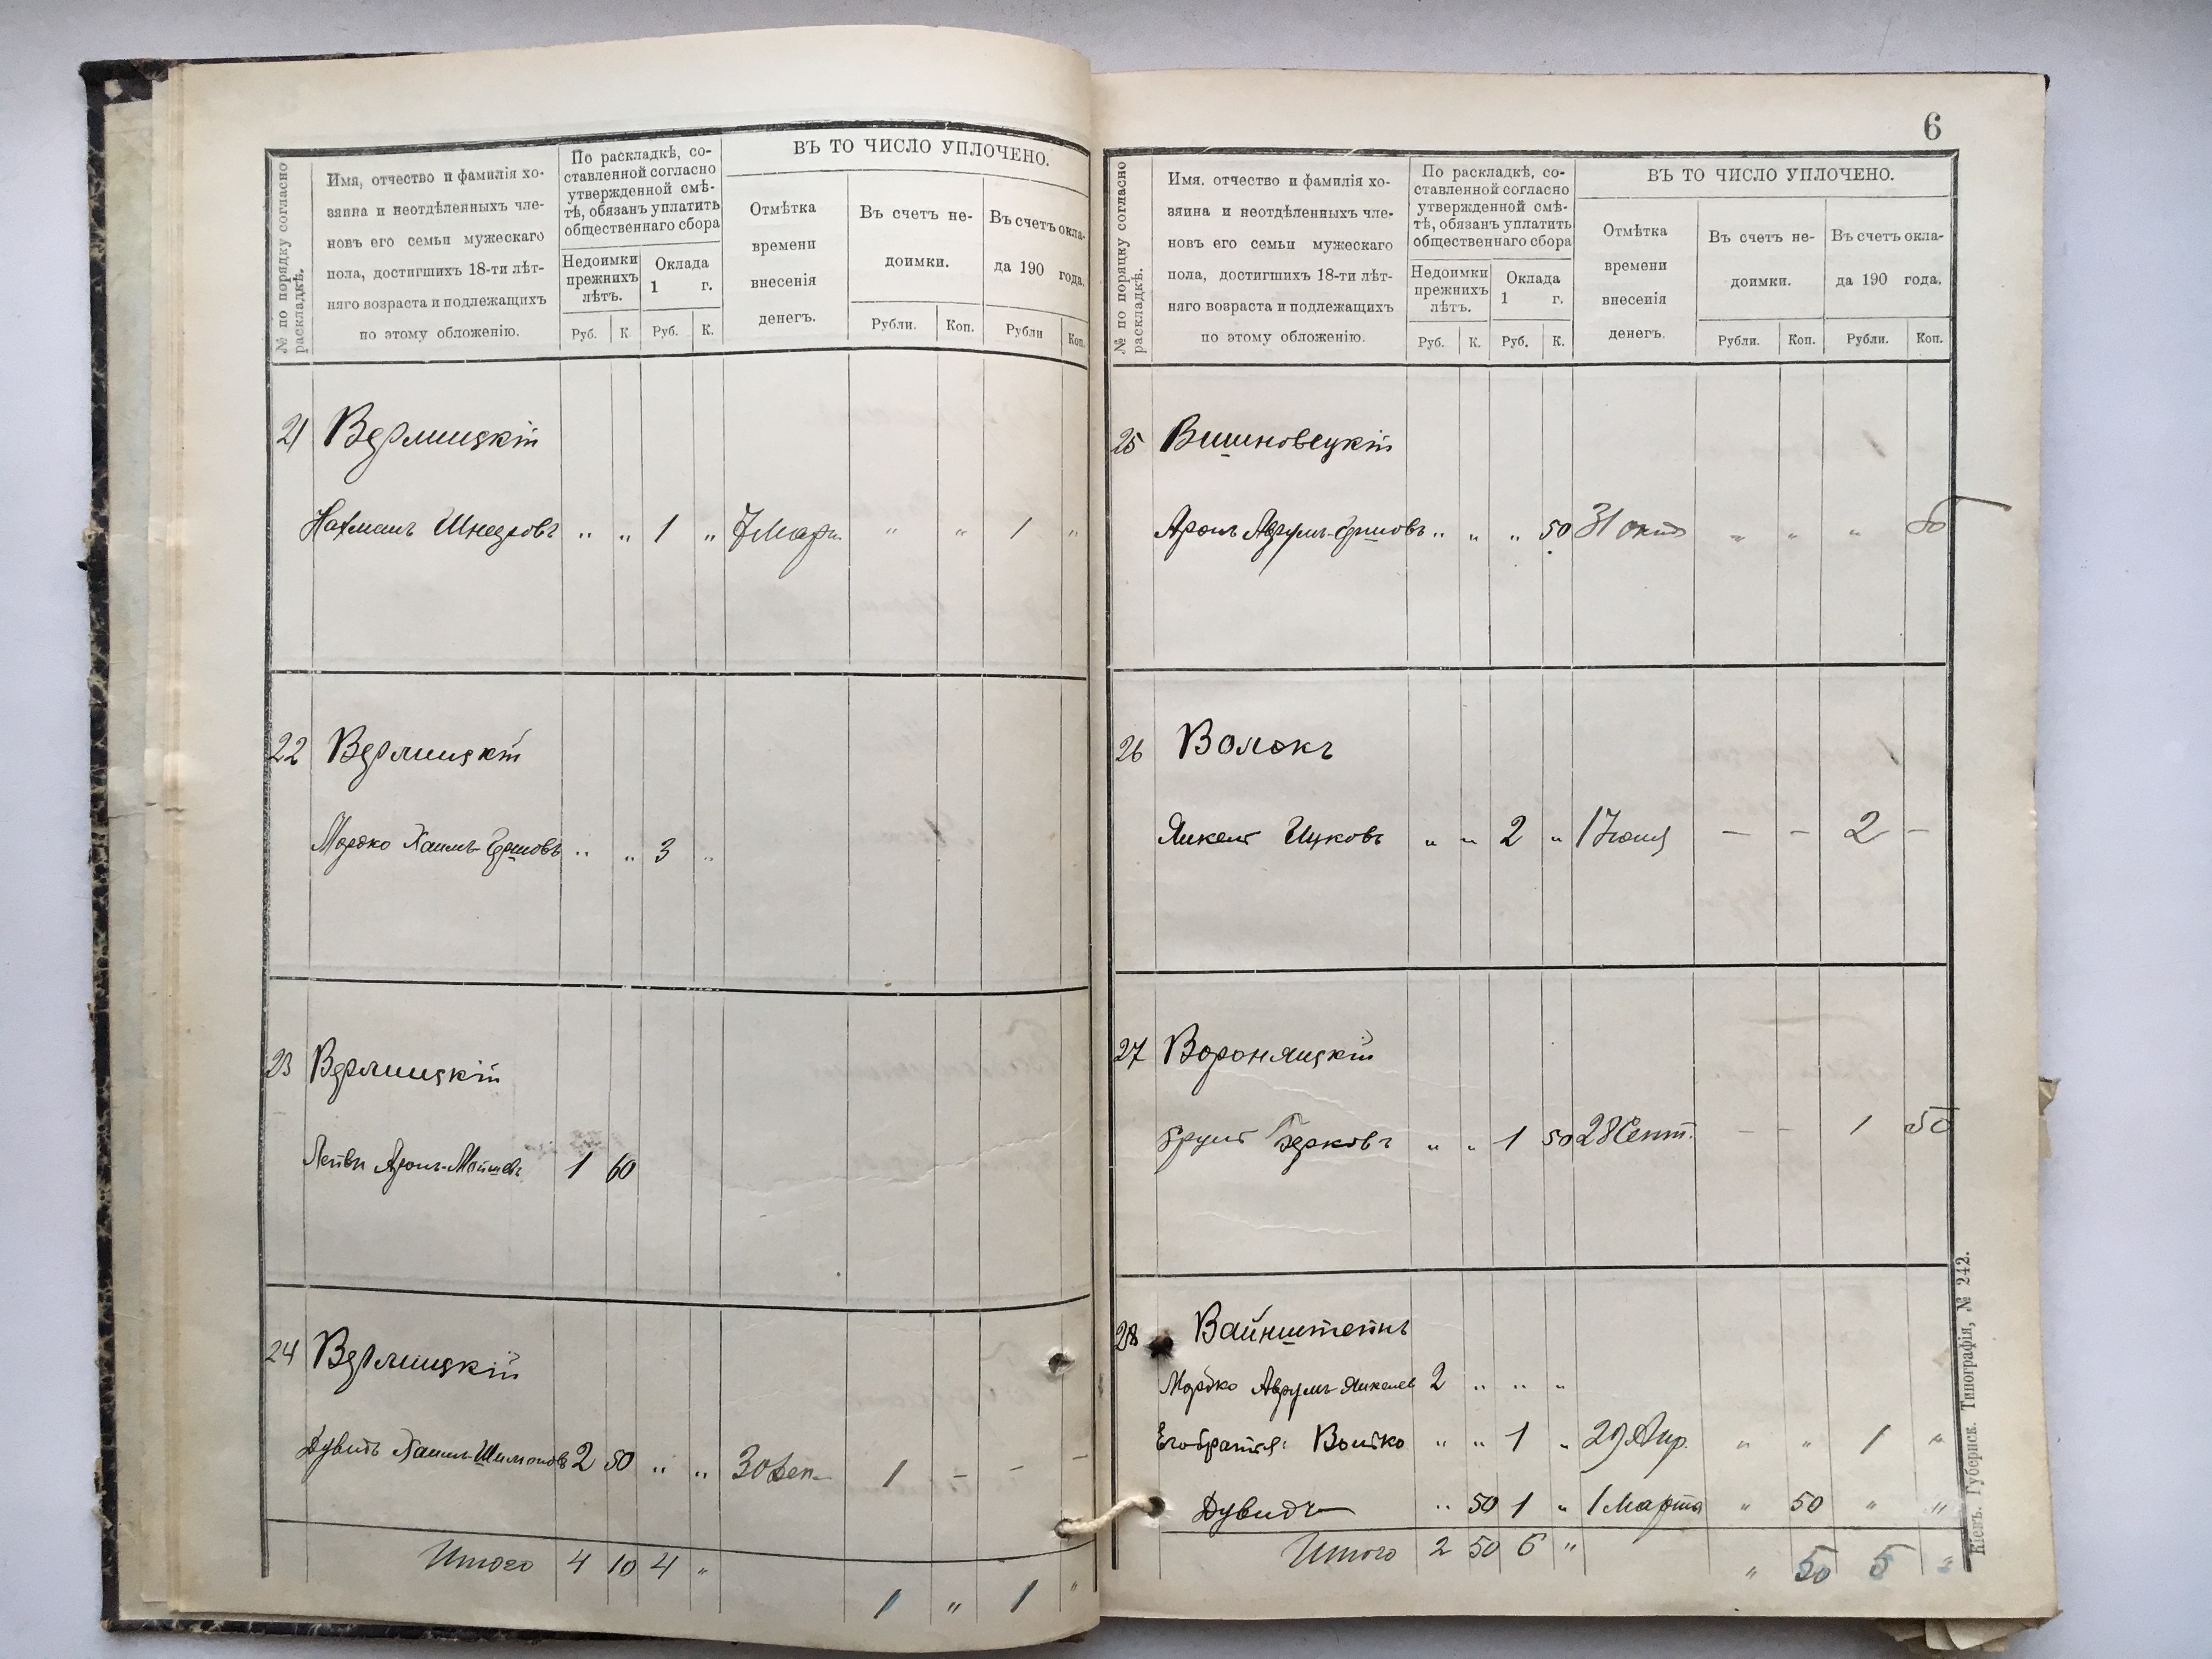 № по порядку согласно
раскладкѣ.
Имя, отчество и фамилія хо-
зяина и неотдѣленныхъ чле-
новъ его семьи мужескаго
пола, достигшихъ 18-ти лѣт-
няго возраста и подлежащихъ
по этому обложенію.
По раскладкѣ, со-
ставленной согласно
утвержденной смѣ-
тѣ, обязанъ уплатить
общественнаго сбора
Недоимки
прежнихъ
лѣтъ.
Оклада
1 г.
Руб. К. Руб. К.
ВЪ ТО ЧИСЛО УПЛОЧЕНО.
Отмѣтка
времени
внесенія
денегъ.
Въ счетъ не-
доимки.
Въ счетъ окла-
да 190 года.
Рубли. Коп. Рубли Коп.
21 Верлицкій
Нахманъ Шнеуровъ „ „ 1 „ 7 Мар. „ „ 1 „
22 Верлицкій
Мордко Хаимъ-Ершовъ „ „ 3 „
23 Верлицкій
Лейви Аронъ-Мошевъ 1 60
24 Верлицкій
Дувидъ Хаимъ-Шимоновъ 2 50 „ „ 30 1 – – –
Итого 4 10 4 „
1 „ 1 „
6
№ по порядку согласно
раскладкѣ.
Имя. отчество и фамилія хо-
зяина и неотдѣленныхъ чле-
новъ его семьи мужескаго
пола, достигшихъ 18-ти лѣт-
няго возраста и подлежащихъ
по этому обложенію.
По раскладкѣ, со-
ставленной согласно
утвержденной смѣ-
тѣ, обязанъ уплатить
общественнаго сбора
Недоимки
прежнихъ
лѣтъ.
Оклада
1 г.
Руб. К. Руб. К.
ВЪ ТО ЧИСЛО УПЛОЧЕНО.
Отмѣтка
времени
внесенія
денегъ.
Въ счетъ не-
доимки.
Въ счетъ окла-
да 190 года.
Рубли. Коп. Рубли. Коп.
25 Вишновецкій
Аронъ Аврумъ-Ершовъ „ „ „ 50 31 окт „ „ „ 50
26 Волокъ
Янкель Ицковъ „ „ 2 „ 1 Іюня – – 2 –
27 Воронянскій
Берковъ „ „ 1 50 28 Сент. – – 1 50
28 Вайнштейнъ
Мордко Аврумъ-Янкелев 2 „ „ „
Его братья: Волько „ „ 1 „ 29 Апр. „ „ 1 „
Дувидъ „ 50 1 „ 1 Марта „ 50 „ „
Итого 2 50 6 „
„ 50 5 „
Кіевъ. Губернск. Типографія, № 242.